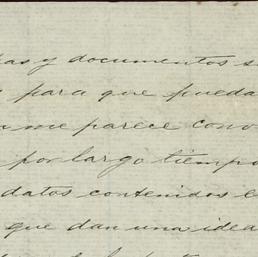 y documentos
para que pueda
me parece
por largo tiempo
datos contenidos
que dan una idea